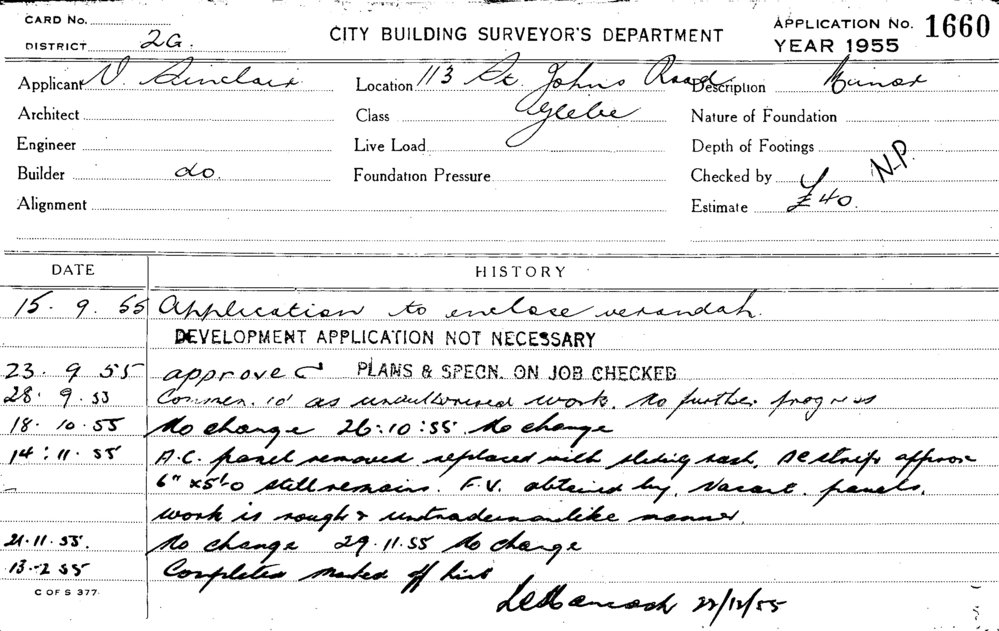 CARD No.
DISTRICT 2G.
CITY BUILDING SURVEYOR'S DEPARTMENT
APPLICATION No. 1660
YEAR 1955
Applicant V. Sinclair Location 113 St. Johns Road Description Minor
Architect Class Glebe Nature of Foundation
Engineer Live Load Depth of Footings
Builder do Foundation Pressure Checked by N.P.
Alignment Estimate £40.
DATE HISTORY
15. 9. 55 Application to enclose verandah.
DEVELOPMENT APPLICATION NOT NECESSARY
23. 9 55 approved PLANS & SPECN. ON JOB CHECKED
28. 9. 55 Commen. as unauthorised work. No further progress
18. 10. 55 No change 26:10:55 No change
14:11. 55 A.C. panel removed replaced with sliding sash. AC strip approx
6" x 5'-0 still remains. F.V. obtained by. Vacant. panels.
work is rough & untradesmanlike manner.
21.11.55. No change 29.11.55 No change
Completed marked off list
C OF S 377.
22/12/55